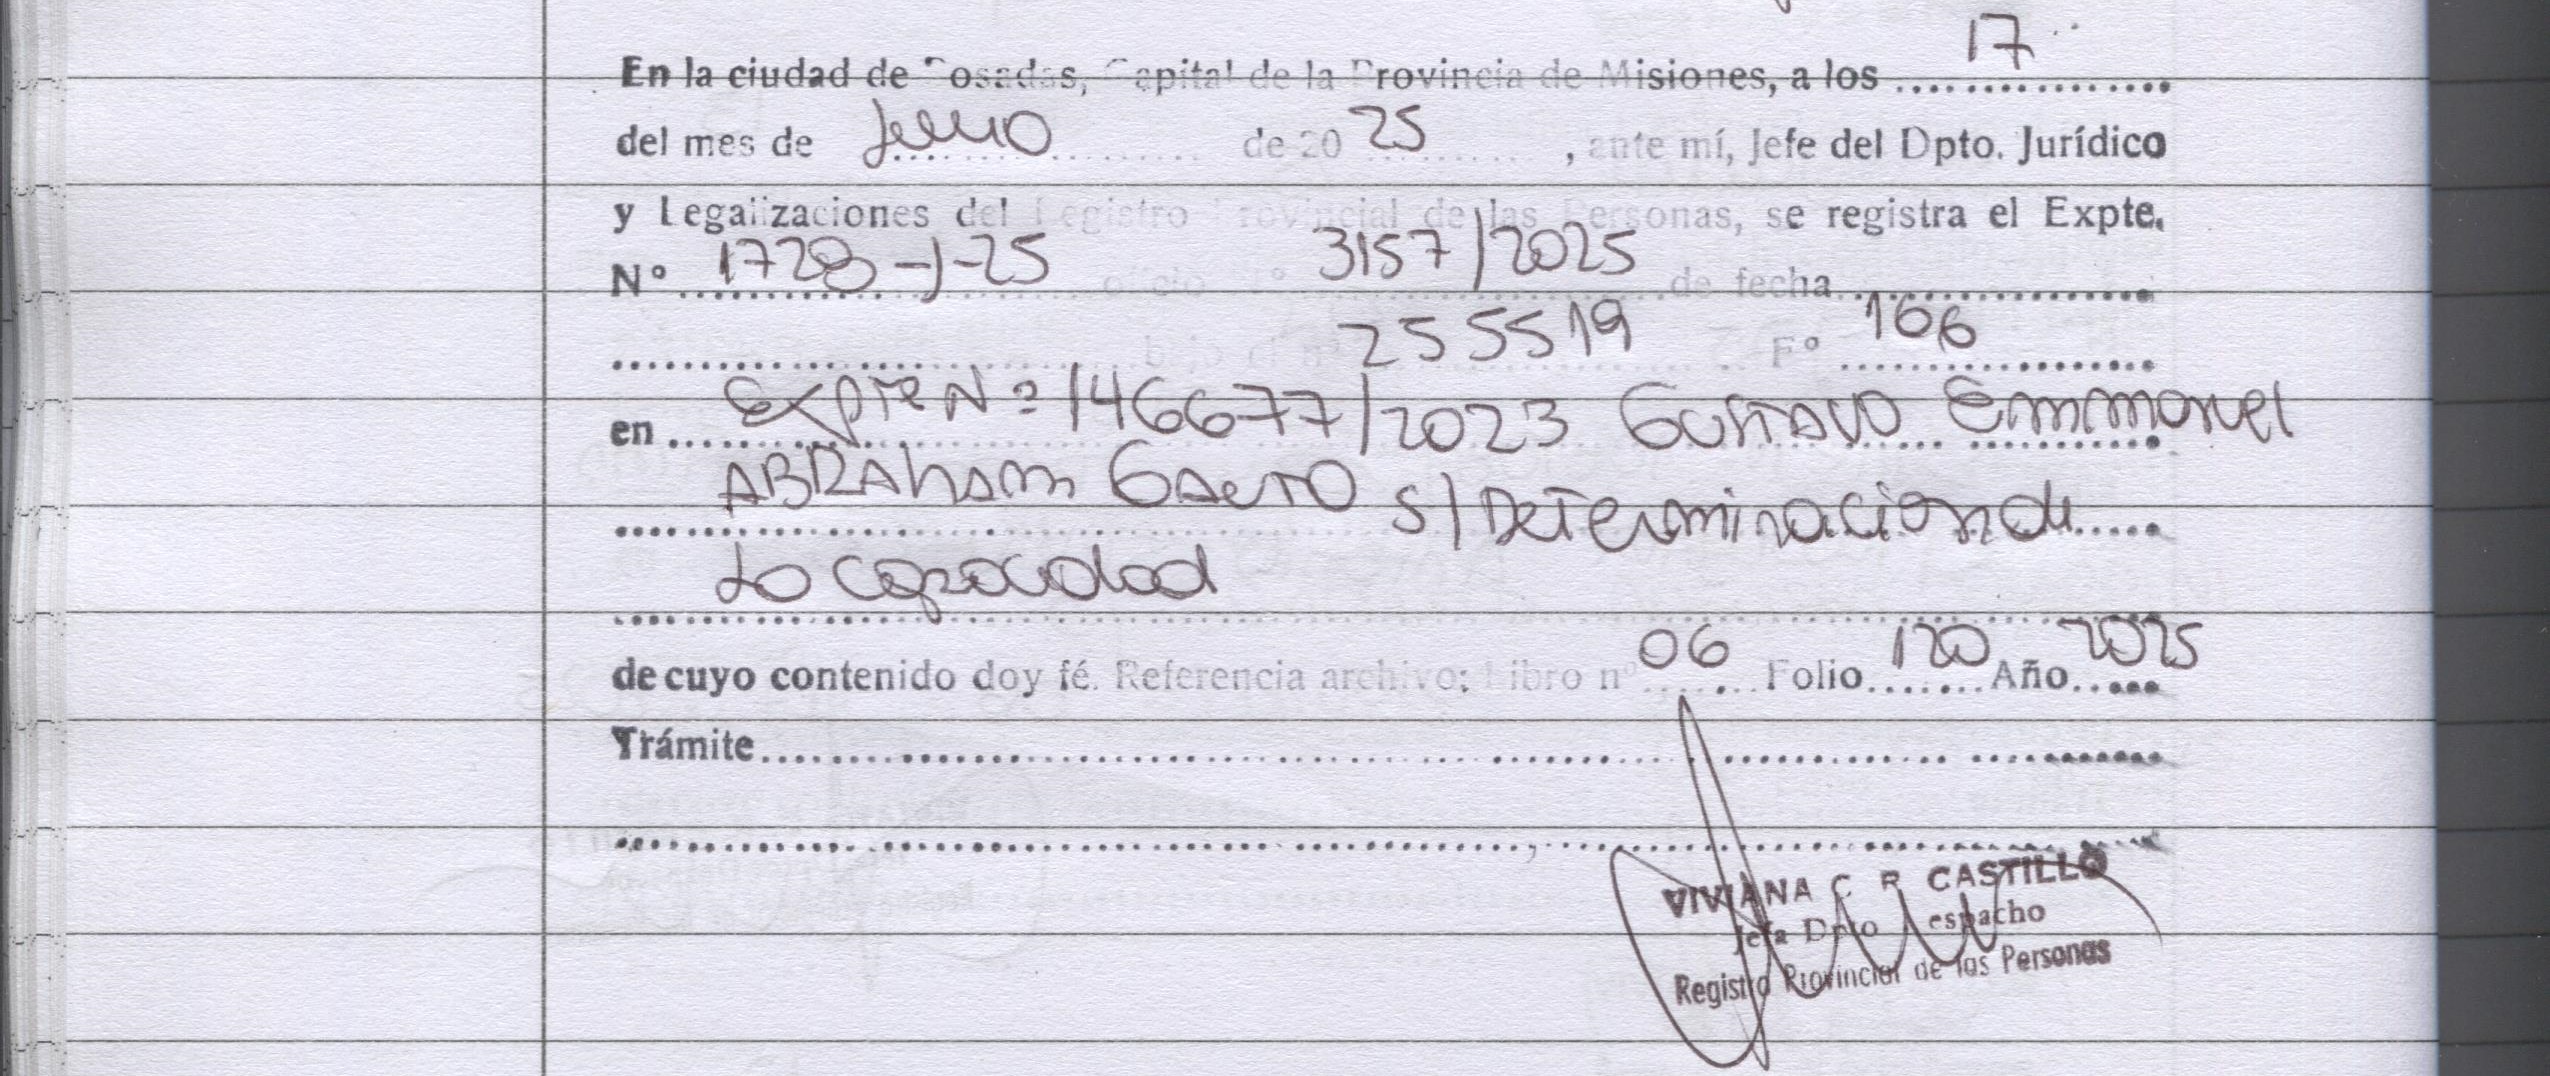 En la ciudad de Posadas, Capital de la Provincia de Misiones, a los 17
del mes de Julio de 2025, ante mí, Jefe del Dpto. Jurídico
y Legalizaciones del Registro Provincial de las Personas, se registra el Expte.
Nº 1728-J-25 oficio nº 3157/2025 de fecha
bajo el nº 255519 Fº 166
en Expte Nº 146677/2023 Gustavo Emmanuel
ABRAham S/Determinacion de
La capacidad
de cuyo contenido doy fé. Referencia archivo: Libro nº 06 Folio 120 Año 2025
Trámite
VIVIANA C R CASTILLO
Jefa Dpto espacho
Registro Provincial de las Personas